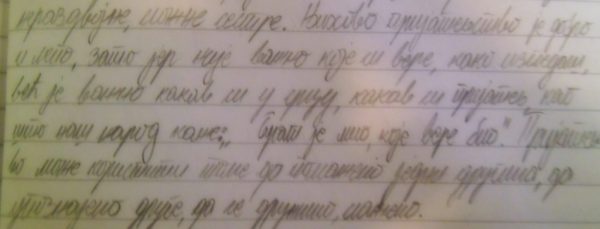 нераздвојне, сложне сестре. Њихово пријатељство је добро
и лепо, зато јер није важно које си вере, како изгледаш,
већ је важно какав си у срцу, какав си пријатељ, као
што наш народ каже: „Брат је мио, које вере био." Пријатељст-
во може користити тиме да помажемо једни другима, да
упознајемо друге, да се дружимо, слажемо.